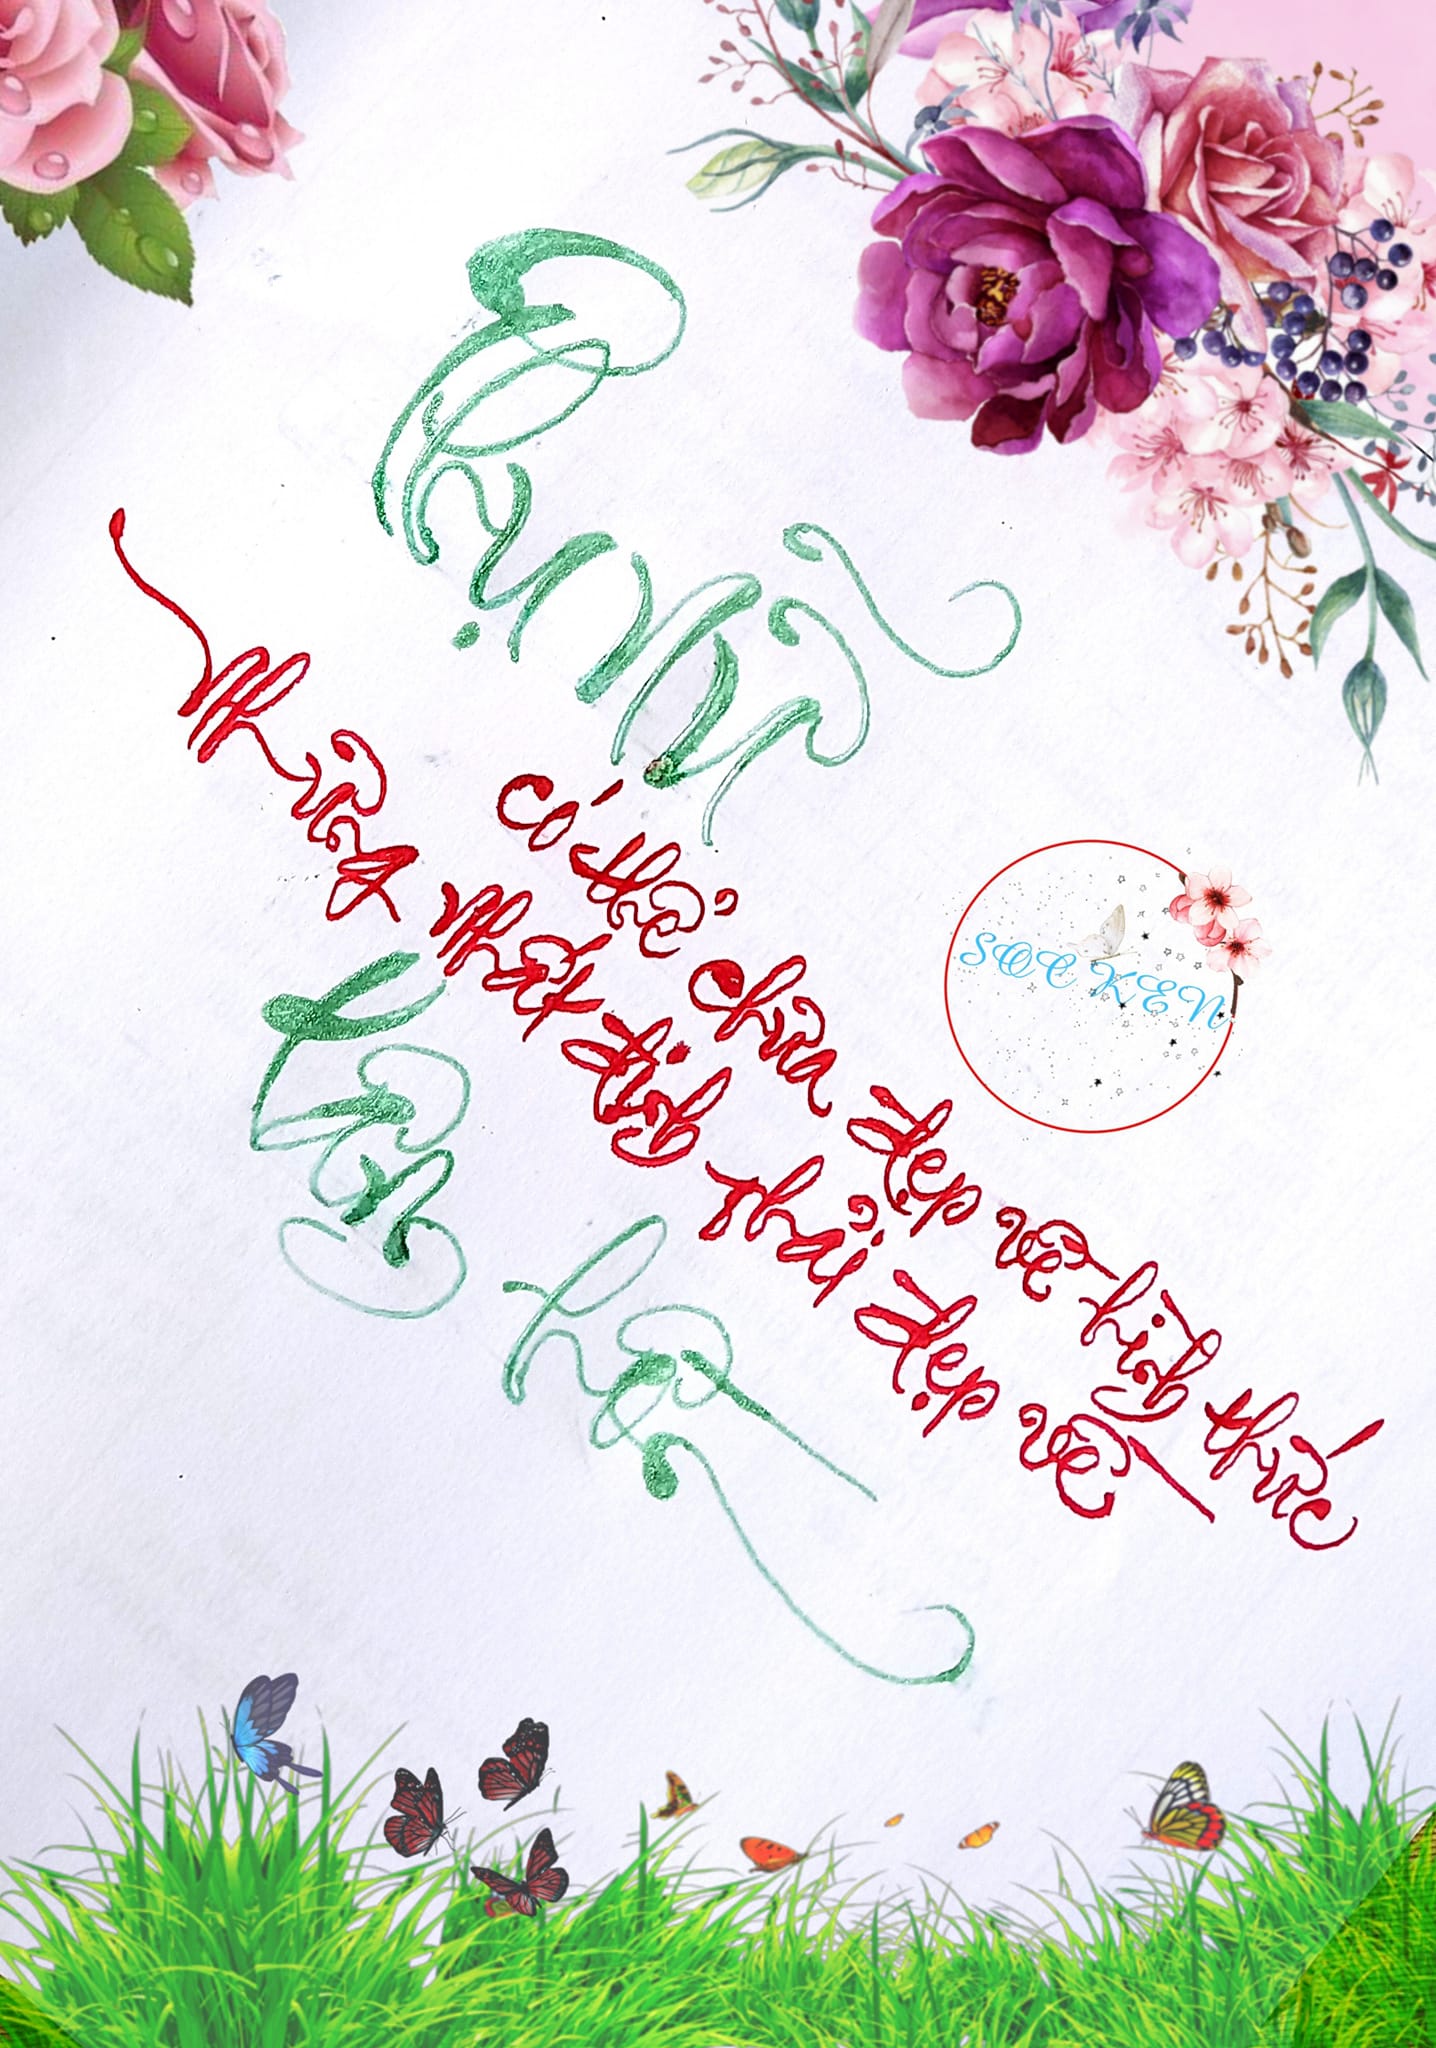 Phụ Nữ
có thể chưa đẹp về hình thức
Nhưng nhất định phải đẹp về
SOC KEN